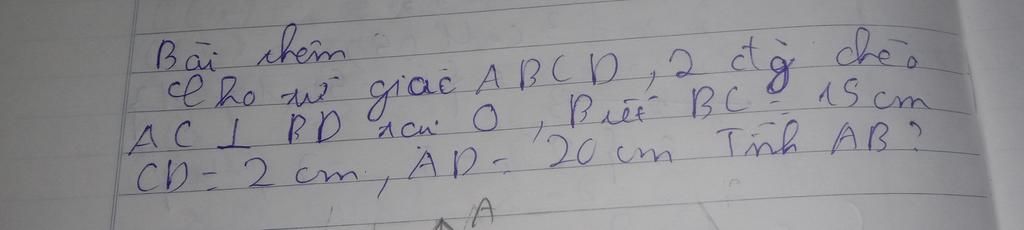 Bài thêm
Cho tứ giác ABCD, 2 đg chéo
AC ⊥ BD tại O, Biết BC = 15 cm
CD = 2 cm, AD = 20 cm Tính AB?
A